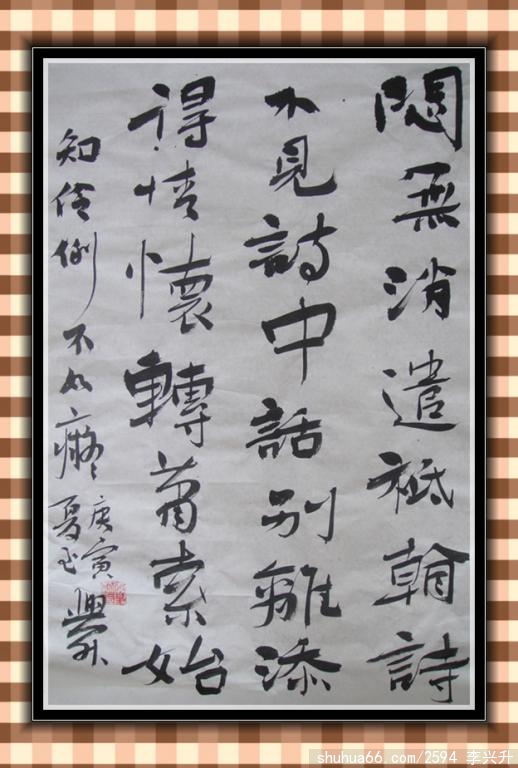 悶無消遣祗翰詩
不見詩中話別離添
得情懷轉蕭索始
知伶俐不如癡
庚寅
夏
興升
shuhua66.com/2594 李兴升